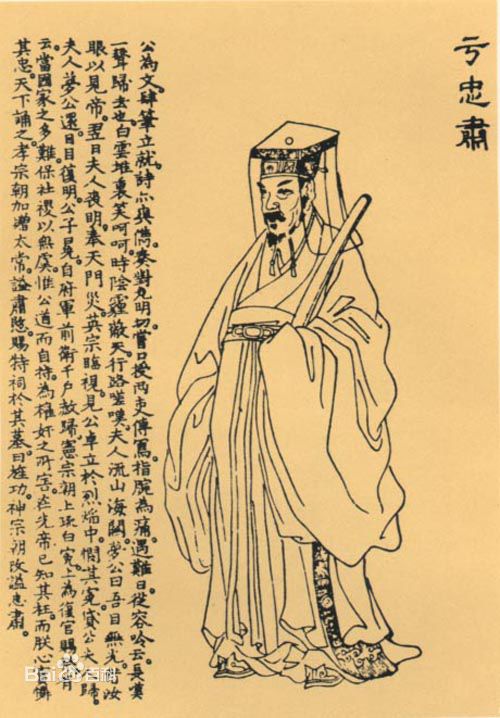 亏忠肅
公為文肆筆立就詩亦與偕奏對尤明切嘗口授两吏傳寫指腕為痛遇難日從容吟云長嘆
一聲歸去也白雲堆裏笑呵呵時陰霾蔽天行路嗟嘆夫人流山海關夢公曰吾目無光借汝
眼以見帝翌日夫人喪明奉天門災英宗臨視見公卓立於烈焰中憫其寃貸公夫人歸
夫人夢公還目目復明公子冕自府軍前衛千戶赦歸憲宗朝上疏白寃上為復官賜祭有
云當國家之多難保社稷以無虞惟公道而自持為權奸之所害在先帝已知其枉而朕心實憐
其忠天下誦之孝宗朝加贈太常謚肅愍賜特祠於其墓曰旌功神宗朝改謚忠肅
Bai百科